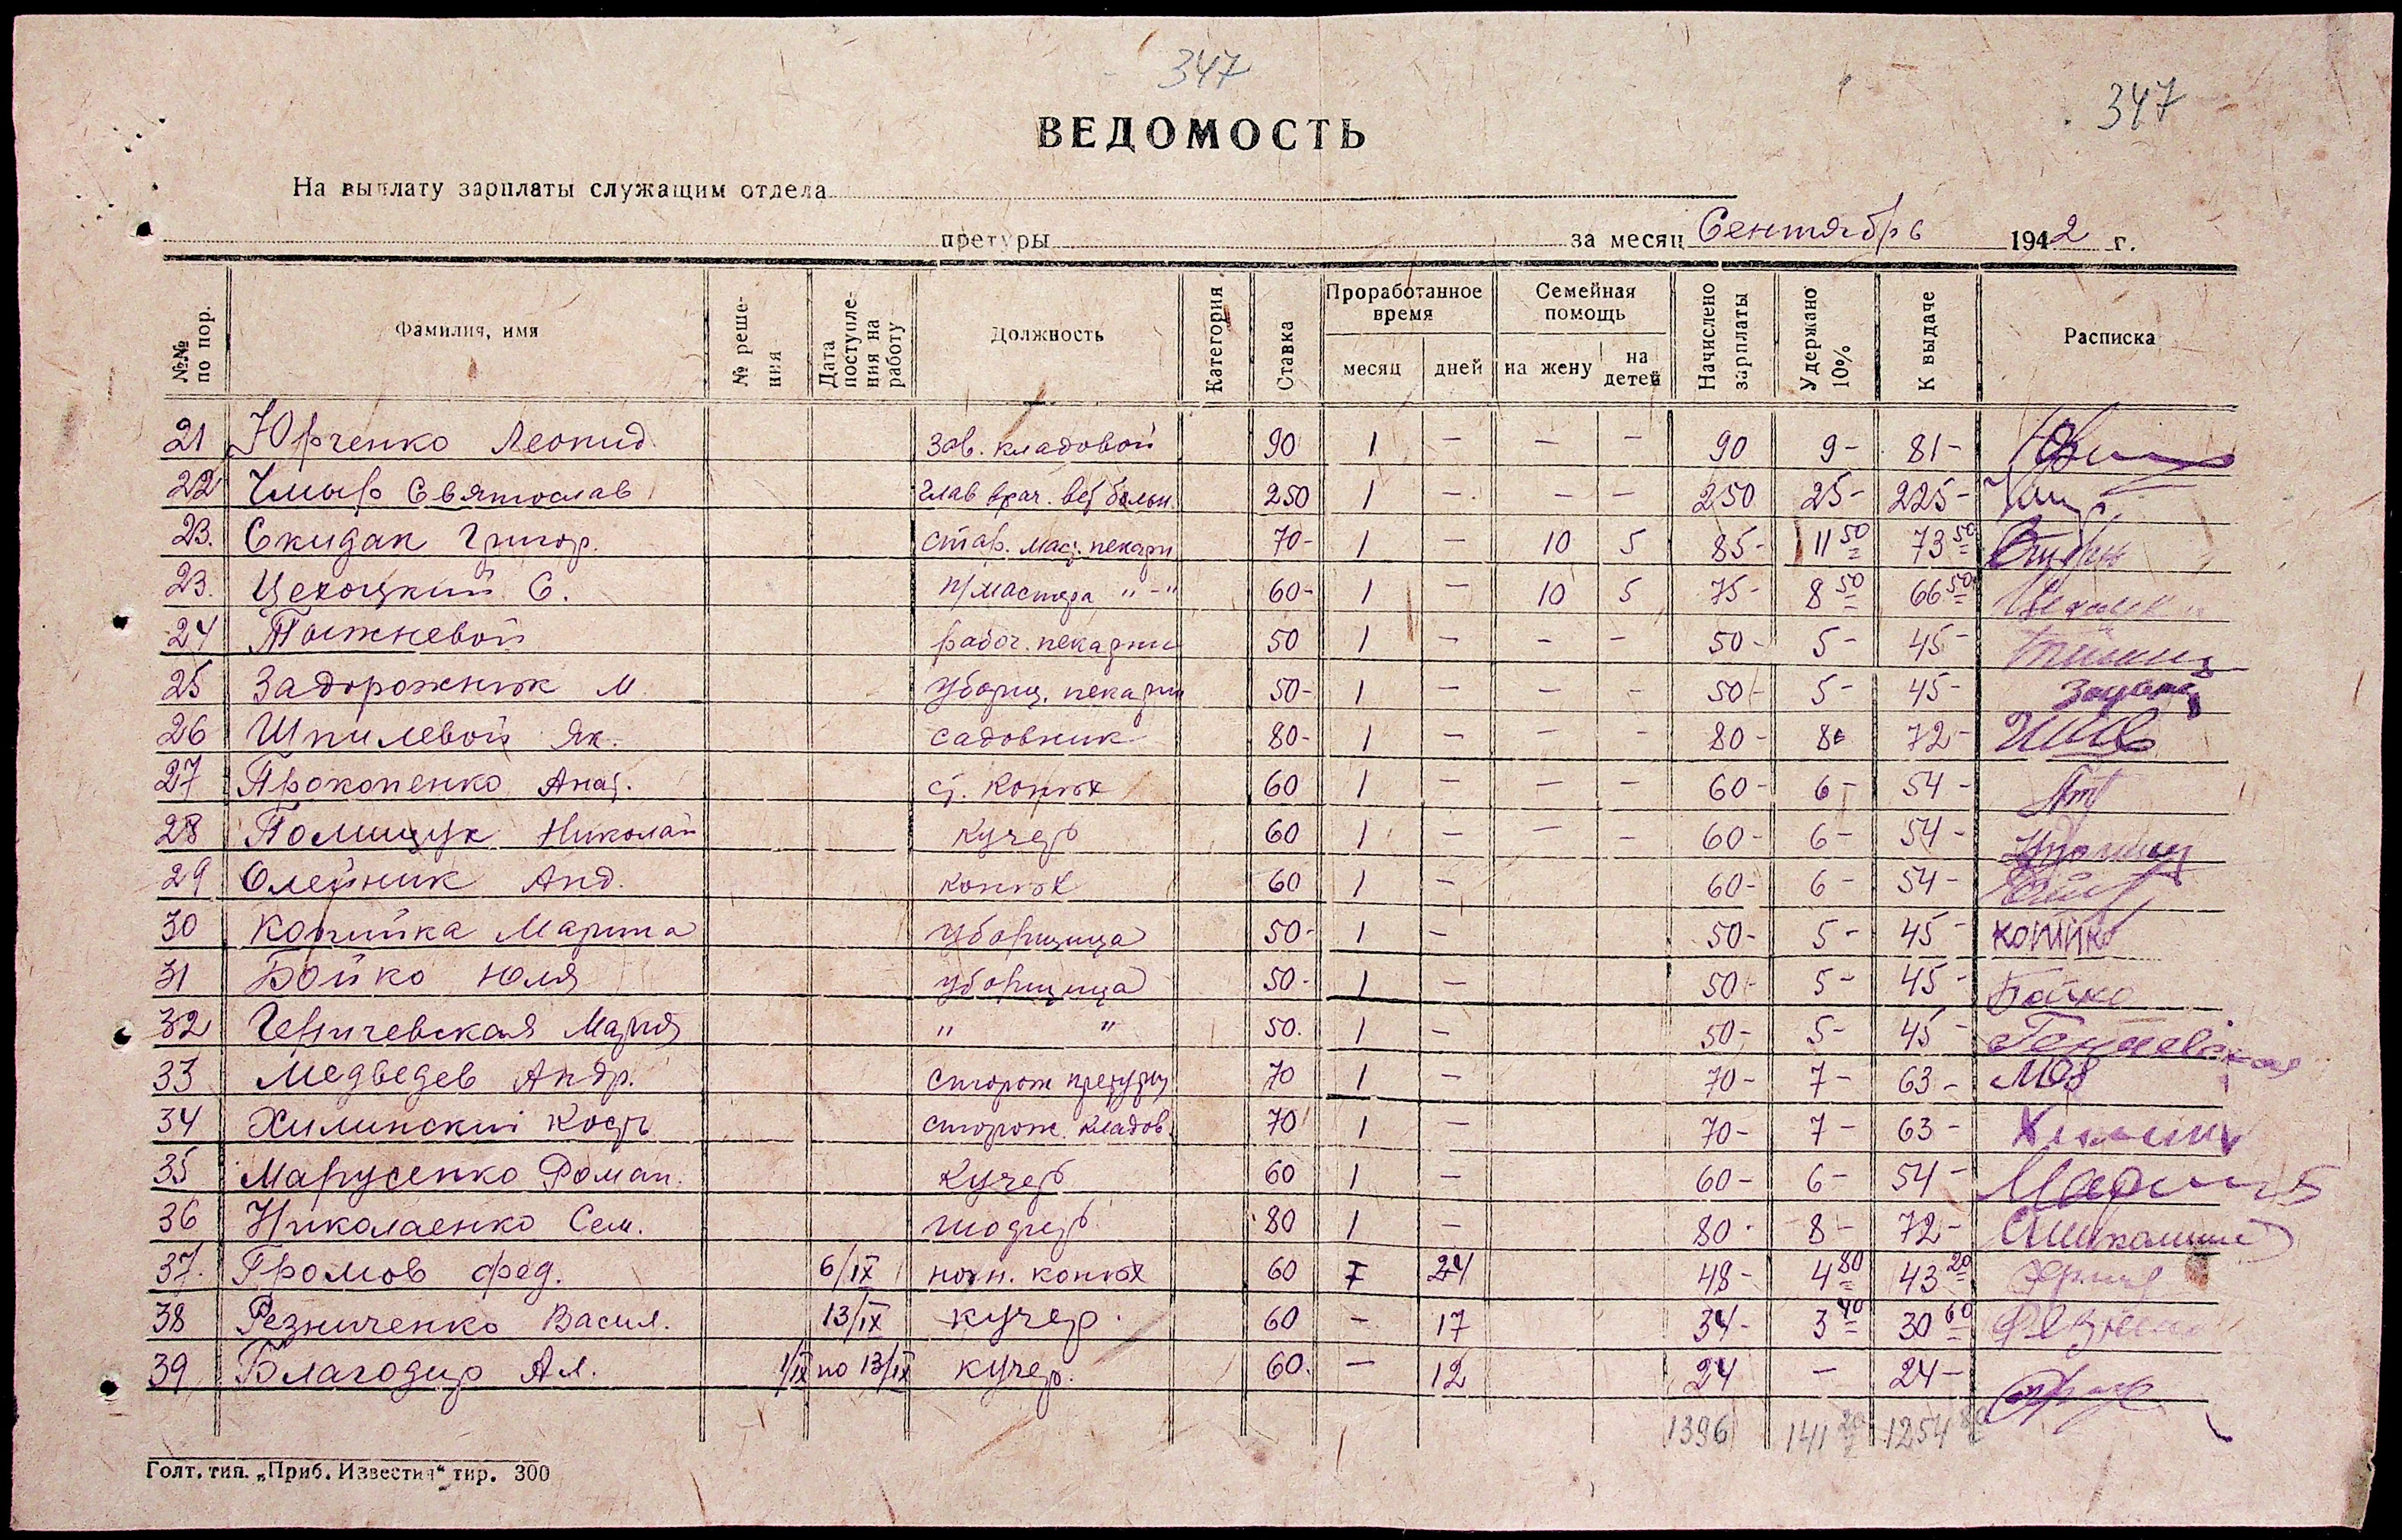 347
347
ВЕДОМОСТЬ
На выплату зарплаты служащим отдела
претуры за месяц Сентябрь 1942 г.
№№ по пор. Фамилия, имя № решения Дата поступления на работу Должность Категория Ставка Проработанное время месяц дней Семейная помощь на жену на детей Начислено зарплаты Удержано 10% К выдаче Расписка
21 Юрченко Леонид зав. кладовой 90 1 — — — 90 9- 81-
22 Чмыр Святослав глав врач. вет больн. 250 1 — — — 250 25- 225-
23. Скидан Григор. стар. маст. пекарн 70- 1 — 10 5 85- 11 50 73 50
23. Цехоцкий С. п/мастера "-" 60- 1 — 10 5 75- 8 50 66 50
24 рабоч. пекарни 50 1 — — — 50- 5- 45-
25 Задорожнюк М убориц. пекарни 50- 1 — — — 50- 5- 45-
26 Шпилевой Як. садовник 80- 1 — — — 80- 8 72-
27 Прокопенко Анат. ст. конюх 60 1 — — — 60- 6- 54-
28 Полищук Николай кучер 60 1 — — — 60- 6- 54-
29 Олейник Анд. конюх 60 1 — 60- 6- 54-
30 Копийка Марина уборщица 50- 1 — 50- 5- 45-
31 Бойко Юля уборщица 50- 1 — 50- 5- 45- Бойко
32 Мария " " 50. 1 — 50- 5- 45-
33 Медведев Андр. сторож претуры 70 1 — 70- 7- 63-
34 Хилинский Кость сторож. кладов. 70 1 — 70- 7- 63-
35 Марусенко Роман. Кучер 60 1 — 60- 6- 54-
36 Николаенко Сем. 80 1 — 80- 8- 72-
37. Громов Фед. 6/IX ночн. конюх 60 24 48- 4 80 43 20
38 Резниченко Васил. 13/IX кучер. 60 — 17 34- 3 40 30 60
39 Благодир Ал. 1/IX по 13/IX кучер. 60. — 12 24 — 24-
1396 141 20 1254 80
Голт. тип. „Приб. Известия“ тир. 300